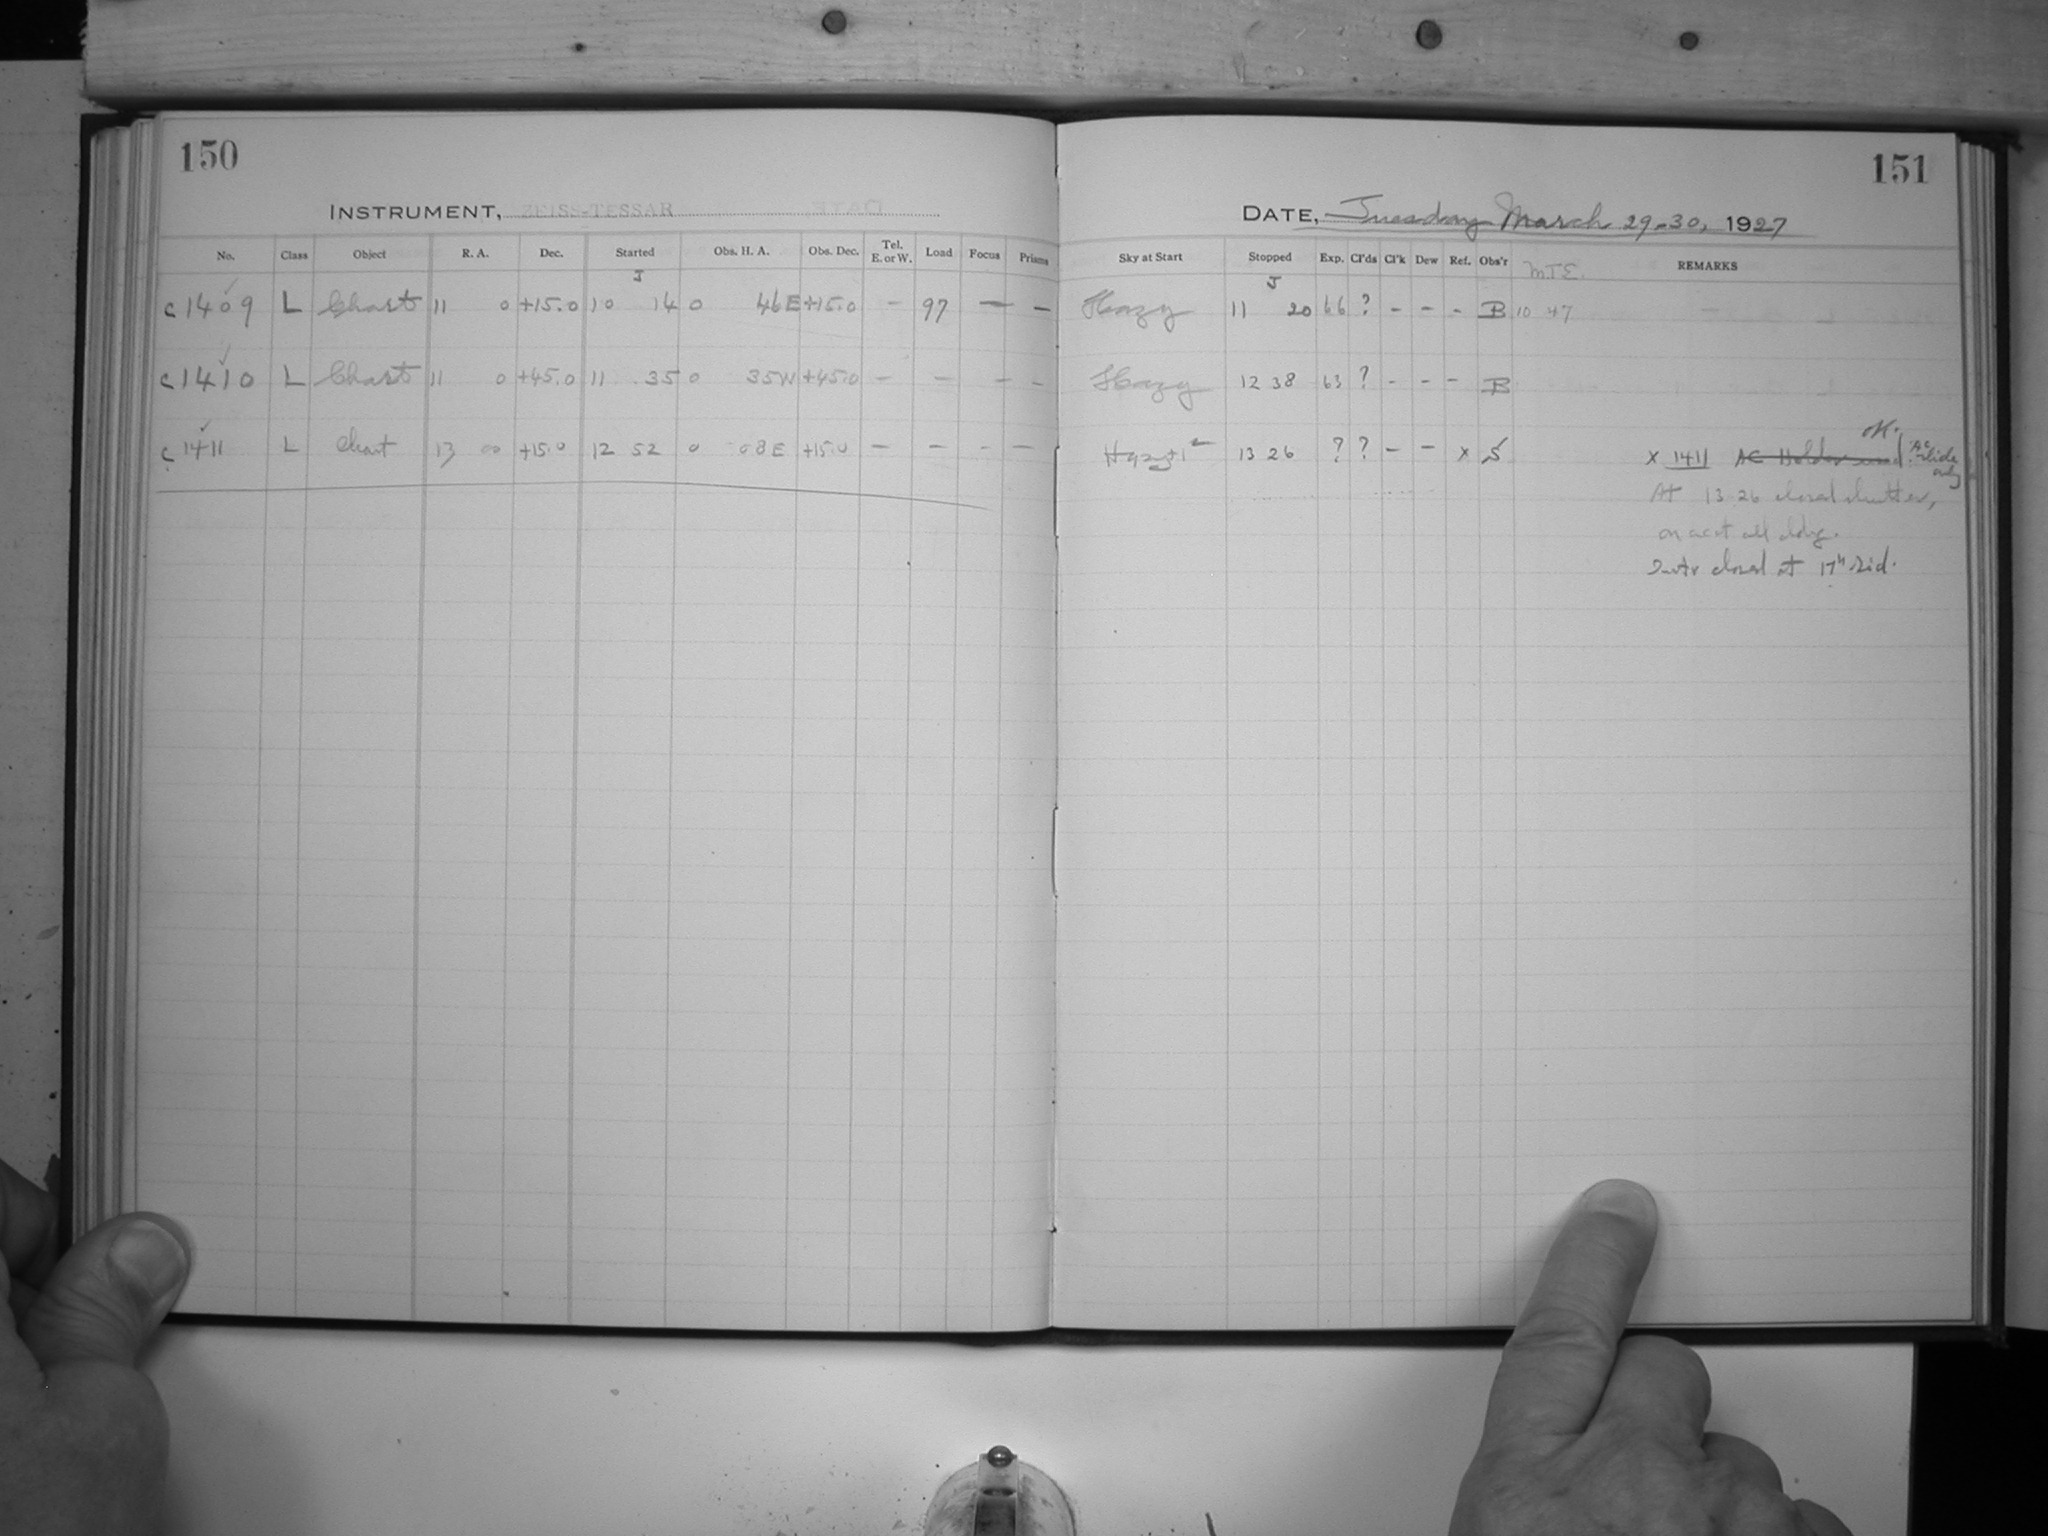 150
INSTRUMENT, ZEISS-TESSAR
No. Class Object R. A. Dec. Started Obs. H. A. Obs. Dec. Tel. E. or W. Load Focus Prisms
J
c1409 L Chart 11 0 +15.0 10 14 0 46E +15.0 – 97 — –
c1410 L Chart 11 0 +45.0 11 35 0 35W +45.0 – – – –
c1411 L Chart 13 00 +15.0 12 52 0 08E +15.0 – – – –
151
DATE, Tuesday March 29-30, 1927
Sky at Start Stopped Exp. Cl'ds Cl'k Dew Ref. Obs'r M.T.E. REMARKS
J
Hazy 11 20 66 ? – – – B 10 47
Hazy 12 38 63 ? – – – B
13 26 ? ? – – x S
OK.
x 1411 AC Holder used AC slide only
At 13 26 closed shutter,
closed at 17h Sid.